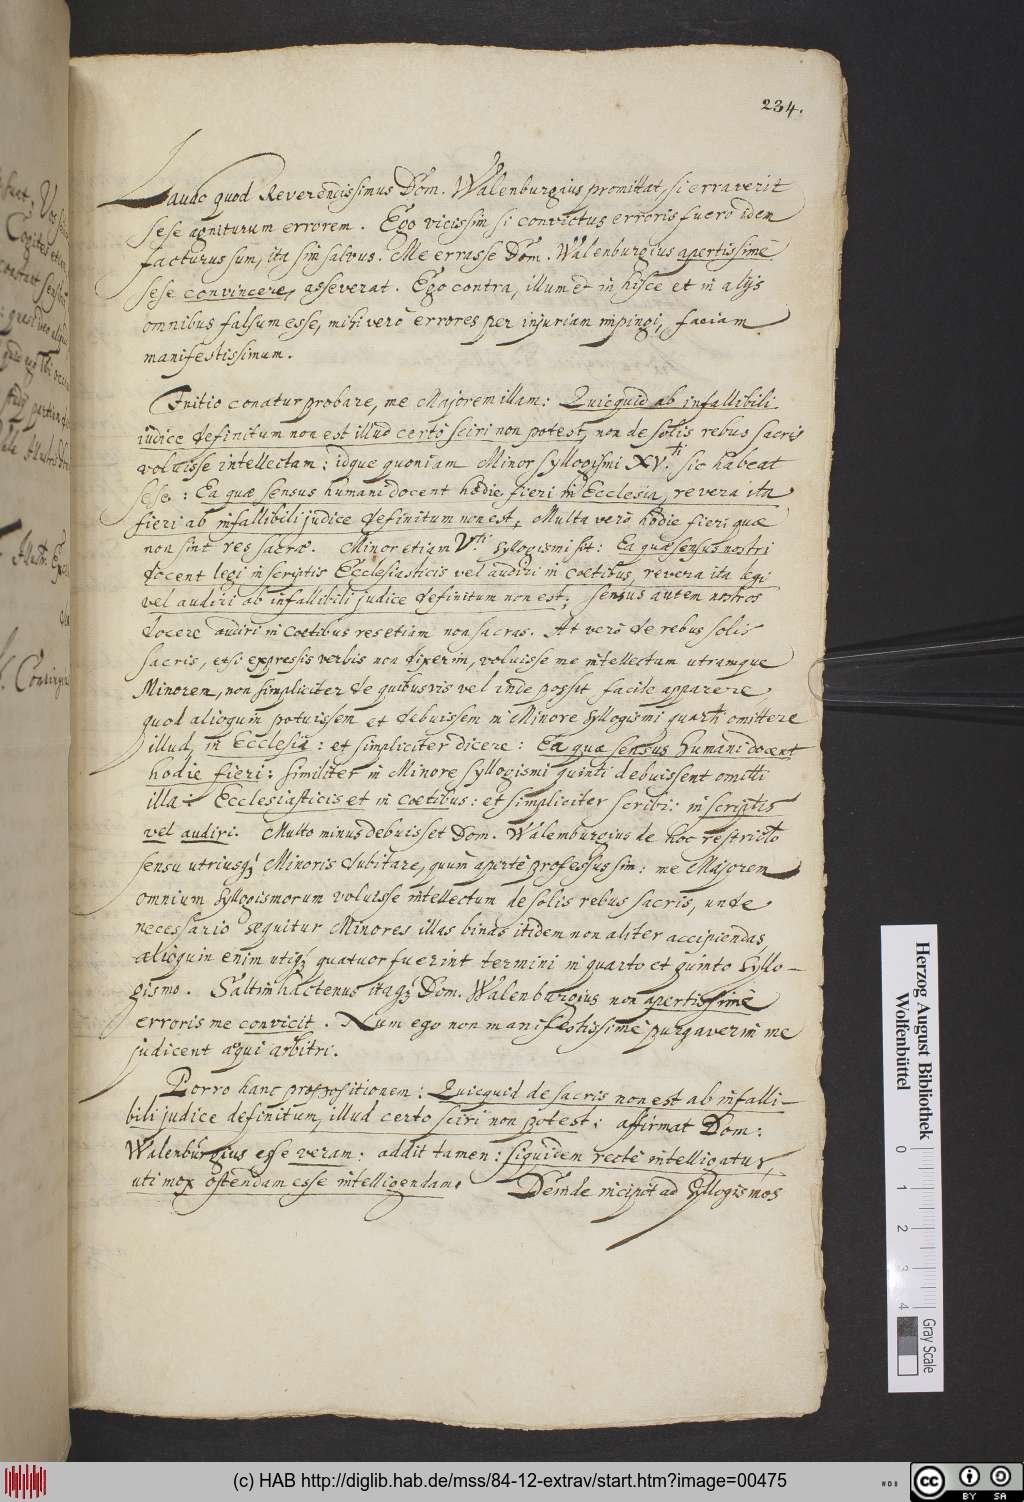 234.
Laudo quod Reverendissimus Dom. Walenburgius promittat, si erraverit
sese agniturum errorem. Ego vicissim si convictus erroris fuero idem
facturus sum, ita sim salvus. Me errasse Dom. Walenburgius apertissimè
sese convincere, asseverat. Ego contra, illum et in hisce et in alijs
omnibus falsum esse, mihi verò errores per injuriam impingi, faciam
manifestissimum.
Initio conatur probare, me Majorem illam: Quicquid ab infallibili
iudice definitum non est illud certò sciri non potest, non de solis rebus sacris
voluisse intellectam: idque quoniam Minor syllogismi XV.ti sic habeat
sese: Ea quæ sensus humani docent hodie fieri in Ecclesia, revera ita
fieri ab infallibili judice definitum non est, Multa verò hodie fieri quæ
non sint res sacræ. Minor etiam V.ti syllogismi sit: Ea quæ sensus nostri
docent legi in scriptis Ecclesiasticis vel audiri in coetibus, revera ita legi
vel audiri ab infallibili judice definitum non est; sensus autem nostros
docere audiri in coetibus res etiam non sacras. At verò de rebus solis
sacris, etsi expressis verbis non dixerim, voluisse me intellectam utramque
Minorem, non simpliciter de quibusvis vel inde possit facile apparere
quod alioquin potuissem et debuissem in Minore syllogismi quarti omittere
illud, in Ecclesia: et simpliciter dicere: Ea quæ sensus humani docent
hodie fieri: similiter in Minore syllogismi quinti debuissent omitti
illa: Ecclesiasticis et in coetibus: et simpliciter scribi: in scriptis
vel audiri. Multo minus debuisset Dom. Walemburgius de hoc restricto
sensu utriusq; Minoris dubitare, quum apertè professus sim: me Majorem
omnium syllogismorum voluisse intellectum de solis rebus sacris, unde
necessario sequitur Minores illas binas itidem non aliter accipiendas,
alioquin enim utiq; quatuor fuerint termini in quarto et quinto syllo-
gismo. Saltim hactenus itaq; Dom. Walenburgius non apertissimè
erroris me convicit. Num ego non manifestissimè purgaverim me
judicent æqui arbitri.
Porro hanc propositionem: Quicquid de sacris non est ab infalli-
bili judice definitum, illud certo sciri non potest: affirmat Dom:
Walenburgius esse veram: addit tamen: siquidem rectè intelligatur,
uti mox ostendam esse intelligendam. Deinde incipit ad syllogismos
Herzog August Bibliothek
Wolfenbüttel
0 1 2 3 4
Gray Scale
(c) HAB http://diglib.hab.de/mss/84-12-extrav/start.htm?image=00475
cc BY SA